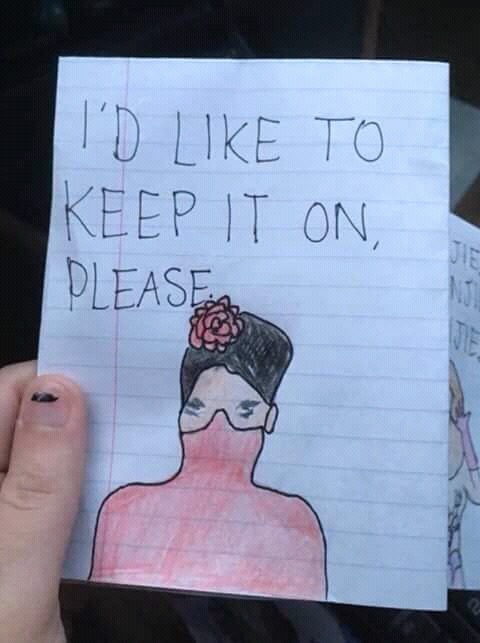 I'D LIKE TO
KEEP IT ON,
PLEASE.
JIE
NJI
JIE